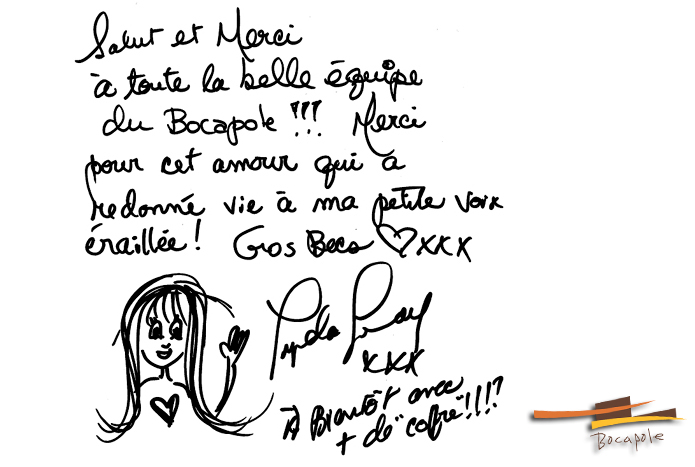 Salut et Merci
à toute la belle équipe
du Bocapole !!! Merci
pour cet amour qui à
redonné vie à ma petite voix
éraillée ! Gros Becs ♡ xxx
Lynda Lemay
xxx
À Bientôt avec
+ de "coffre" !!!?
Bocapole